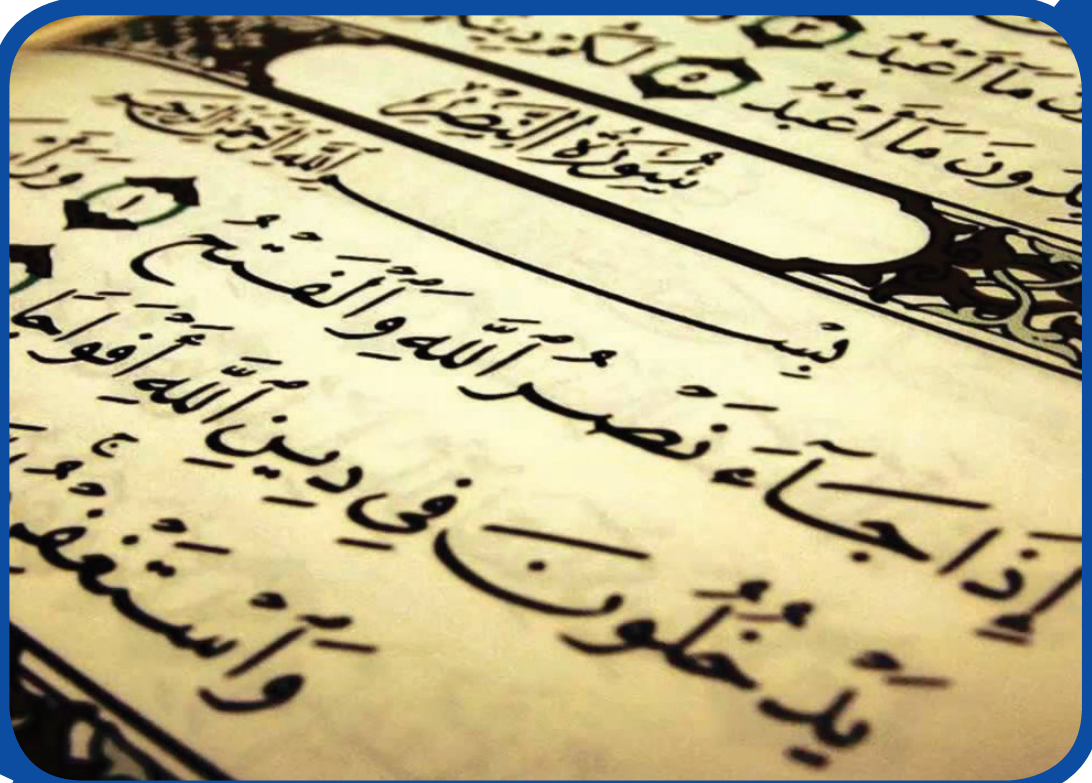 مَآ أَعْبُدُ ٣
دُونَ مَآ أَعْبُدُ ٥ لَكُمْ
سُورَةُ النَّصْرِ
بِسْمِ ٱللَّهِ ٱلرَّحْمَٰنِ ٱلرَّحِيمِ
إِذَا جَآءَ نَصْرُ ٱللَّهِ وَٱلْفَتْحُ ١
يَدْخُلُونَ فِى دِينِ ٱللَّهِ أَفْوَاجًا
وَٱسْتَغْفِرْهُ